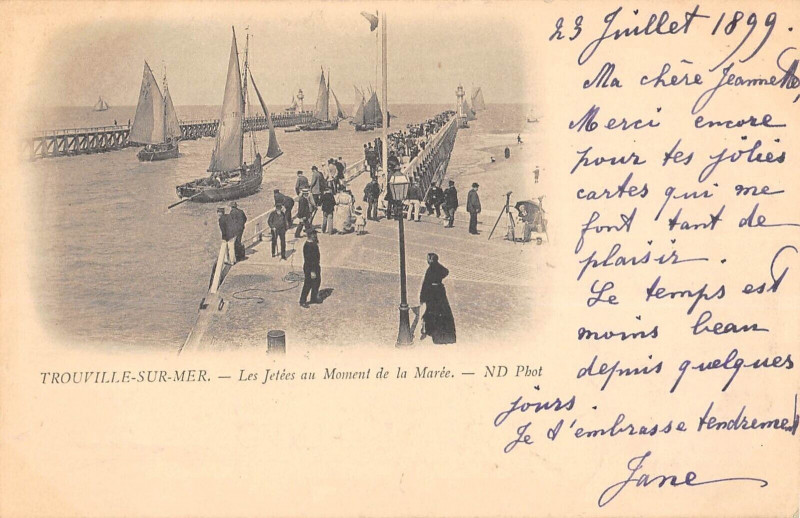 23 Juillet 1899.
Ma chère Jeannette,
Merci encore
pour tes jolies
cartes qui me
font tant de
plaisir.
Le temps est
moins beau
depuis quelques
jours.
Je t'embrasse tendrement
Jane
TROUVILLE-SUR-MER. — Les Jetées au Moment de la Marée. — ND Phot